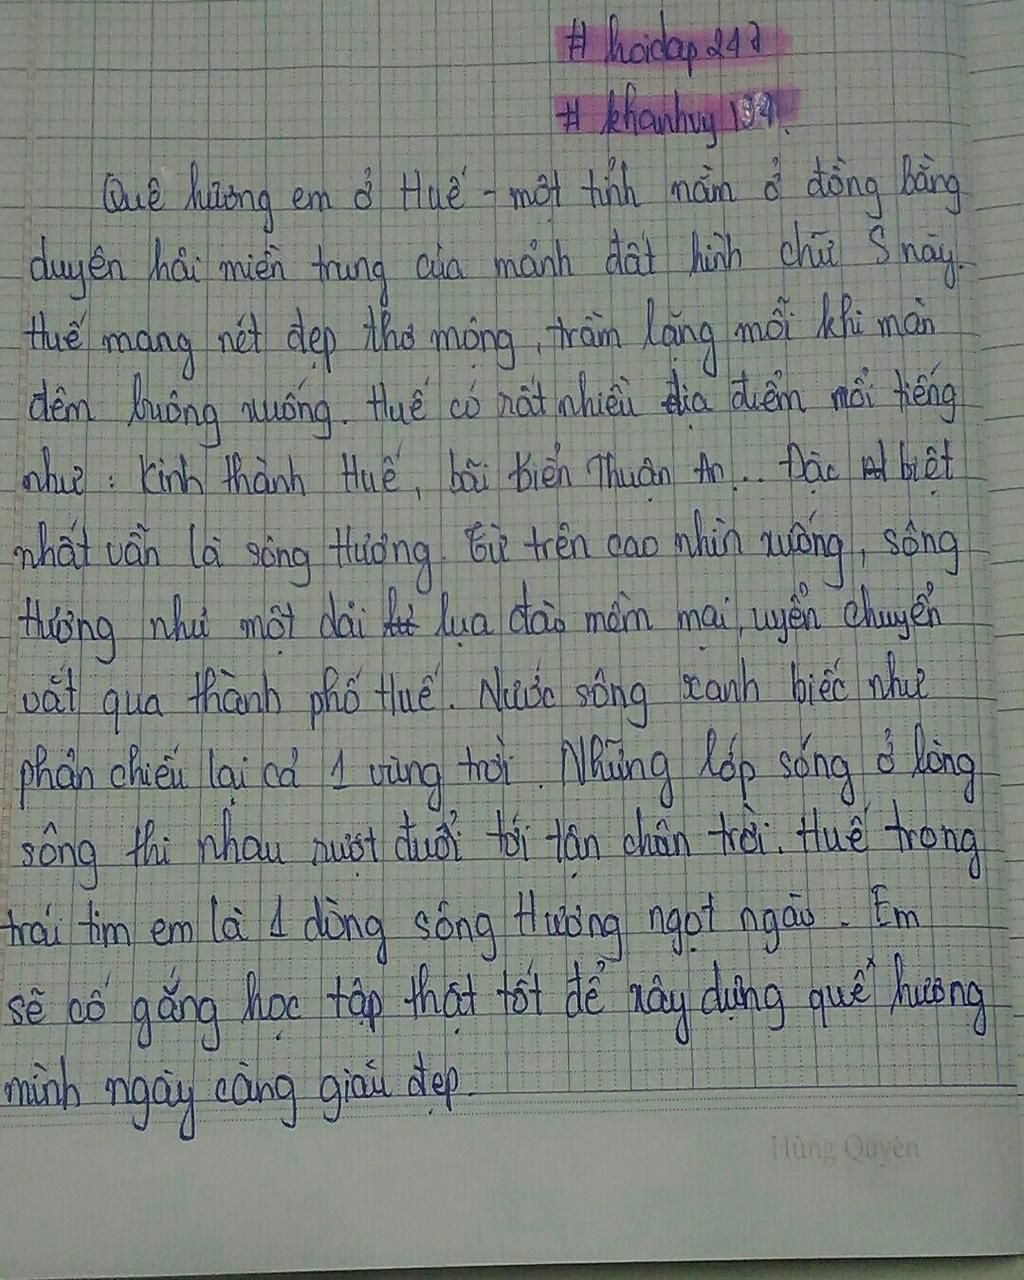 # hoidap247
# khanhvy
Quê hương em ở Huế - một tỉnh nằm ở đồng bằng
duyên hải miền trung của mảnh đất hình chữ S này.
Huế mang nét đẹp thơ mộng, trầm lặng mỗi khi màn
đêm buông xuống. Huế có rất nhiều địa điểm nổi tiếng
như : Kinh thành Huế, bãi biển Thuận An... Đặc biệt
nhất vẫn là sông Hương. Từ trên cao nhìn xuống, sông
Hương như một dải lụa đào mềm mại, uyển chuyển
vắt qua thành phố Huế. Nước sông xanh biếc như
phản chiếu lại cả 1 vùng trời. Những lớp sóng ở lòng
sông thi nhau rượt đuổi tới tận chân trời. Huế trong
trái tim em là 1 dòng sông Hương ngọt ngào. Em
sẽ cố gắng học tập thật tốt để xây dựng quê hương
mình ngày càng giàu đẹp.
Hùng Quyên